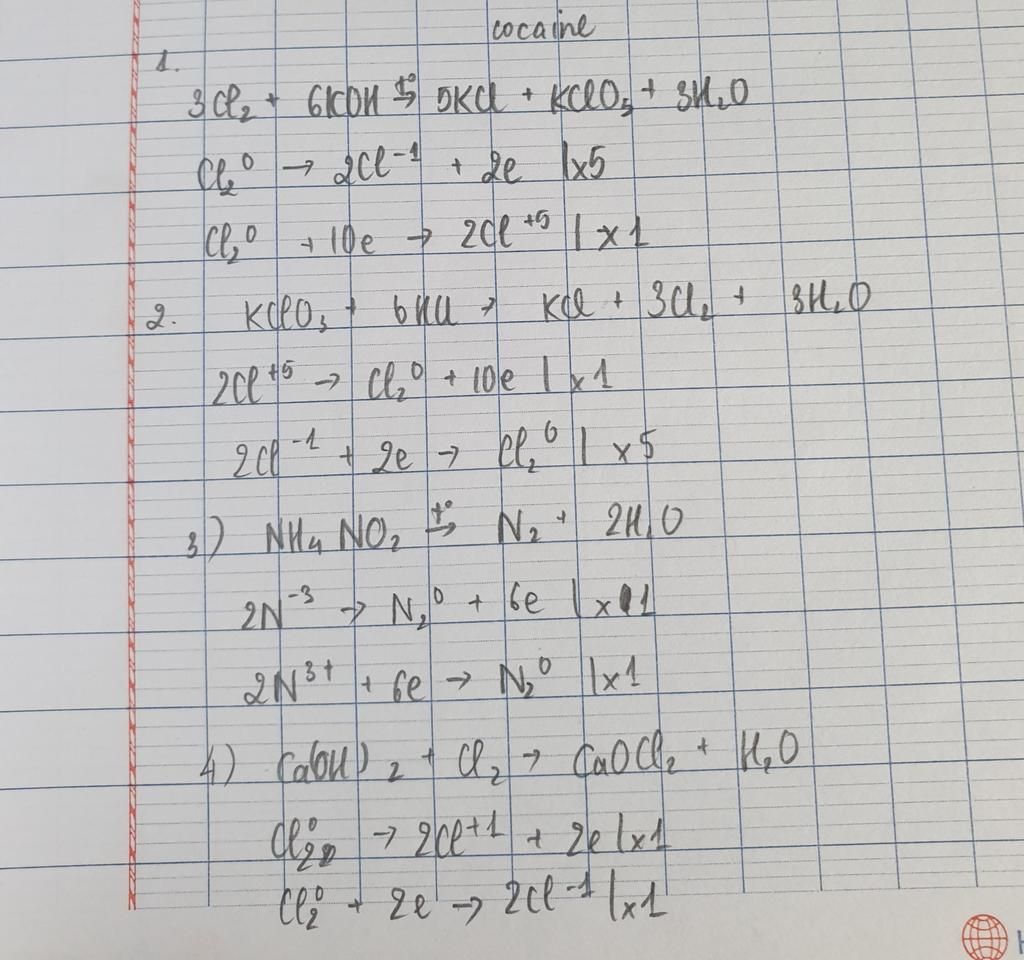 cocaine
1.
3Cl₂ + 6KOH t°→ 5KCl + KClO₃ + 3H₂O
Cl₂⁰ → 2Cl⁻¹ + 2e |x5
Cl₂⁰ + 10e → 2Cl⁺⁵ | x1
2. KClO₃ + 6HCl → KCl + 3Cl₂ + 3H₂O
2Cl⁺⁵ → Cl₂⁰ + 10e | x1
2Cl⁻¹ + 2e → Cl₂⁰ | x5
3) NH₄NO₂ t°→ N₂ + 2H₂O
2N⁻³ → N₂⁰ + 6e | x1
2N³⁺ + 6e → N₂⁰ |x1
4) Ca(OH)₂ + Cl₂ → CaOCl₂ + H₂O
Cl₂⁰ → 2Cl⁺¹ + 2e |x1
Cl₂⁰ + 2e → 2Cl⁻¹ |x1